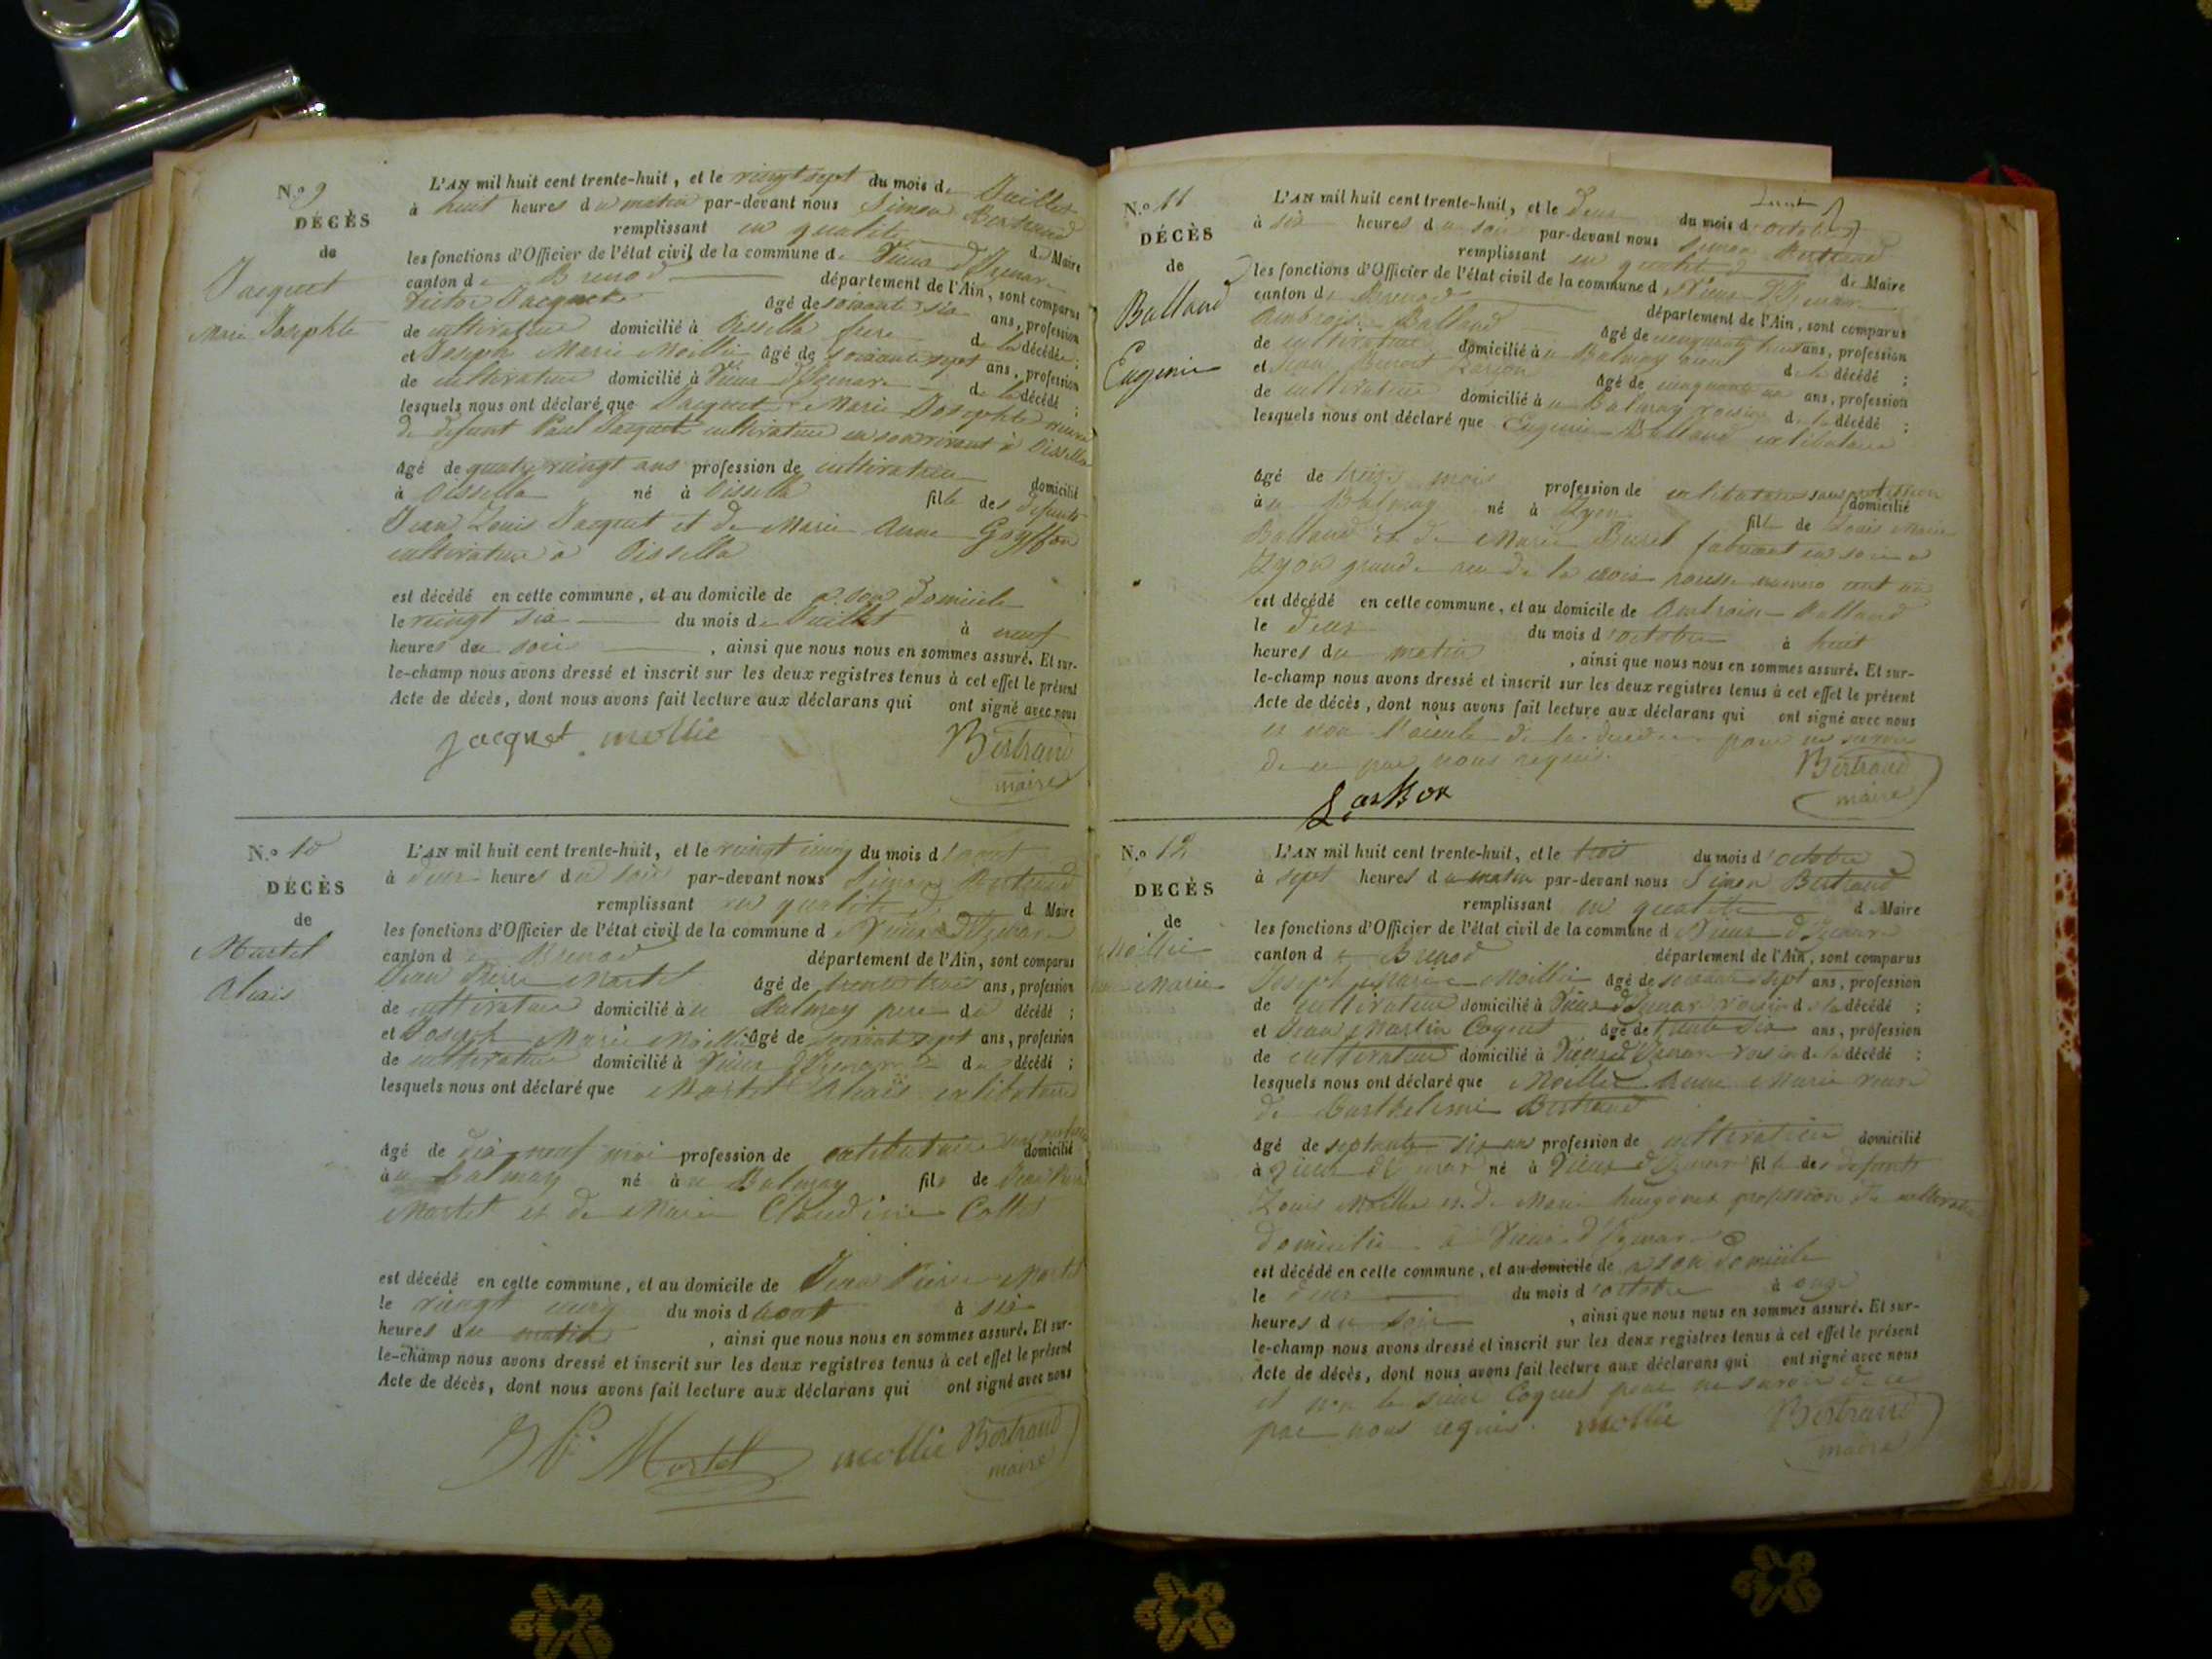 N.o 9
DÉCÈS
de
Jacquet
Marie Josephte
L'AN mil huit cent trente-huit, et le vingt sept du mois de Juillet
à huit heures du matin par-devant nous Simon Bertrand
remplissant en qualité de Maire
les fonctions d'Officier de l'état civil de la commune de Vieux d'Izenave
canton de Brenod département de l'Ain, sont comparus
Victor Jacquet âgé de soixante six ans, profession
de cultivateur domicilié à Oissella frere de la décédée ;
et Joseph Marie Moillie âgé de soixante sept ans, profession
de cultivateur domicilié à Vieux d'Izenave de la décédé ;
lesquels nous ont déclaré que Jacquet Marie Josephte veuve
de defunt Paul Jacquet cultivateur en son vivant à Oissella
âgé de quatre vingt ans profession de cultivateur domicilié
à Oissella né à Oissella fille des defunts
Jean Louis Jacquet et de Marie Anne Goyffon
cultivateur à Oissella
est décédé en cette commune, et au domicile de a son domicile
le vingt six du mois de Juillet à neuf
heures du soir , ainsi que nous nous en sommes assuré. Et sur-
le-champ nous avons dressé et inscrit sur les deux registres tenus à cet effet le présent
Acte de décès, dont nous avons fait lecture aux déclarans qui ont signé avec nous
Jacquet mollie Bertrand
maire
N.o 10
DÉCÈS
de
Martel
Alexis
L'AN mil huit cent trente-huit, et le vingt cinq du mois d'aout
à deux heures du soir par-devant nous Simon Bertrand
remplissant en qualité de d Maire
les fonctions d'Officier de l'état civil de la commune de Vieux d'Izenave
canton de Brenod département de l'Ain, sont comparus
Jean Pierre Martel âgé de trente trois ans, profession
de cultivateur domicilié à u Balmay pere du décédé ;
et Joseph Marie Moillie âgé de soixante sept ans, profession
de cultivateur domicilié à Vieux d'Izenave du décédé ;
lesquels nous ont déclaré que Martel Alexis celibataire
âgé de dix neuf moi profession de celibataire domicilié
à u Balmay né à u Balmay fils de Jean Pierre
Martel et de Marie Claudine Collet
est décédé en cette commune, et au domicile de Jean Pierre Martel
le vingt cinq du mois d'aout à six
heures du matin , ainsi que nous nous en sommes assuré. Et sur-
le-champ nous avons dressé et inscrit sur les deux registres tenus à cet effet le présent
Acte de décès, dont nous avons fait lecture aux déclarans qui ont signé avec nous
Martel mollie Bertrand
maire
N.o 11
DÉCÈS
de
Balland
Eugenie
L'AN mil huit cent trente-huit, et le deux du mois d'octobre
à six heures du soir par-devant nous Simon Bertrand
remplissant en qualité de Maire
les fonctions d'Officier de l'état civil de la commune de Vieux d'Izenave
canton de Brenod département de l'Ain, sont comparus
Ambroise Balland âgé de cinquante huit ans, profession
de cultivateur domicilié à u Balmay de la décédé ;
et Jean Benoit Larçon âgé de cinquante un ans, profession
de cultivateur domicilié à u Balmay voisin de la décédé ;
lesquels nous ont déclaré que Eugenie Balland celibataire
âgé de treize mois profession de celibataire sans profession domicilié
à u Balmay né à Lyon fille de Louis Marie
Balland et de Marie Buret fabricant en soie a
Lyon grande rue de la croix rousse numero cent un
est décédé en cette commune, et au domicile de Ambroise Balland
le deux du mois d'octobre à huit
heures du matin , ainsi que nous nous en sommes assuré. Et sur-
le-champ nous avons dressé et inscrit sur les deux registres tenus à cet effet le présent
Acte de décès, dont nous avons fait lecture aux déclarans qui ont signé avec nous
et non de la décédée pour ne savoir
de ce par nous requis. Bertrand
maire
N.o 12
DÉCÈS
de
Moillie
Marie
L'AN mil huit cent trente-huit, et le trois du mois d'octobre
à sept heures du matin par-devant nous Simon Bertrand
remplissant en qualité d Maire
les fonctions d'Officier de l'état civil de la commune de Vieux d'Izenave
canton de Brenod département de l'Ain, sont comparus
Joseph Marie Moillie âgé de soixante sept ans, profession
de cultivateur domicilié à Vieux d'Izenave voisin de la décédé ;
et Jean Martin Coquet âgé de trente six ans, profession
de cultivateur domicilié à Vieux d'Izenave voisin de la décédé ;
lesquels nous ont déclaré que Moillie Anne Marie veuve
de Barthelemi Bertrand
âgé de septante six ans profession de cultivateur domicilié
à Vieux d'Izenave né à Vieux d'Izenave fille des defunts
Louis Moillie et de Marie profession de cultivateur
domicilié à Vieux d'Izenave
est décédé en cette commune, et au domicile de a son domicile
le deux du mois d'octobre à onze
heures du soir , ainsi que nous nous en sommes assuré. Et sur-
le-champ nous avons dressé et inscrit sur les deux registres tenus à cet effet le présent
Acte de décès, dont nous avons fait lecture aux déclarans qui ont signé avec nous
et non le sieur Coquet pour ne savoir de ce
par nous requis. mollie Bertrand
maire